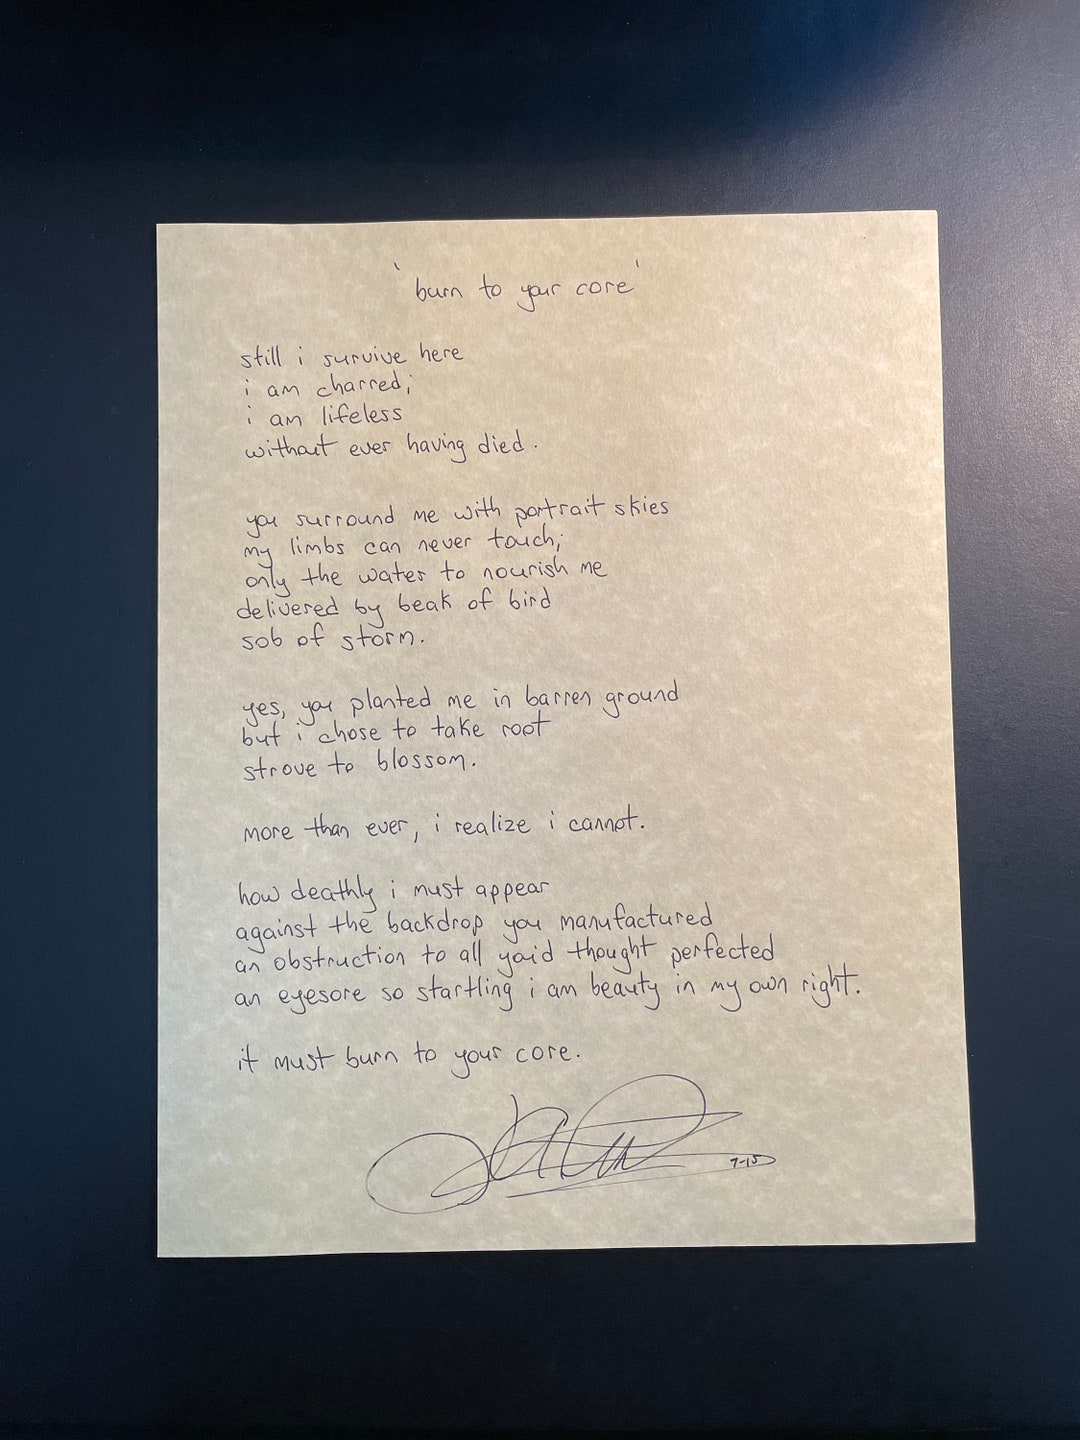 'burn to your core'
still i survive here
i am charred;
i am lifeless
without ever having died.
you surround me with portrait skies
my limbs can never touch;
only the water to nourish me
delivered by beak of bird
sob of storm.
yes, you planted me in barren ground
but i chose to take root
strove to blossom.
more than ever, i realize i cannot.
how deathly i must appear
against the backdrop you manufactured
an obstruction to all you'd thought perfected
an eyesore so startling i am beauty in my own right.
it must burn to your core.
7-15